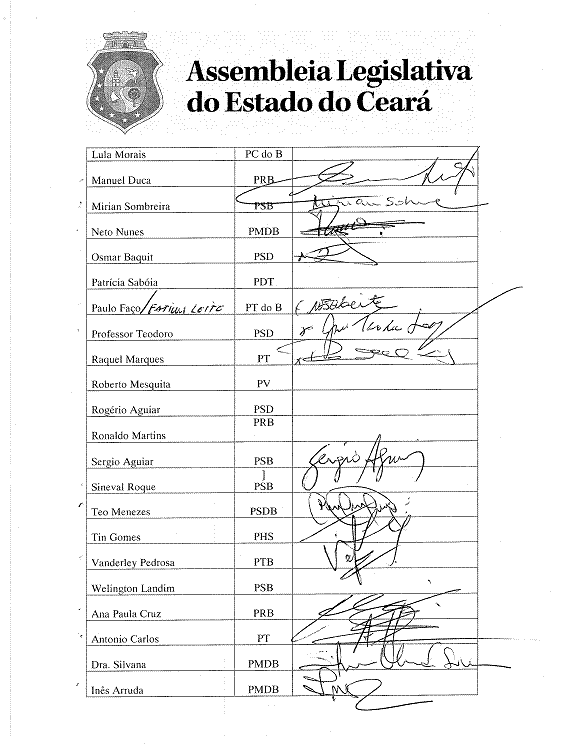 Assembleia Legislativa
do Estado do Ceará
Lula Morais PC do B
Manuel Duca PRB
Mirian Sombreira PSB
Neto Nunes PMDB
Osmar Baquit PSD
Patrícia Sabóia PDT
Paulo Faço/FARIAS LEITE PT do B
Professor Teodoro PSD
Raquel Marques PT
Roberto Mesquita PV
Rogério Aguiar PSD
PRB
Ronaldo Martins
Sergio Aguiar PSB Sergio Aguiar
]
Sineval Roque PSB
Teo Menezes PSDB
Tin Gomes PHS
Vanderley Pedrosa PTB
Welington Landim PSB
Ana Paula Cruz PRB
Antonio Carlos PT
Dra. Silvana PMDB
Inês Arruda PMDB